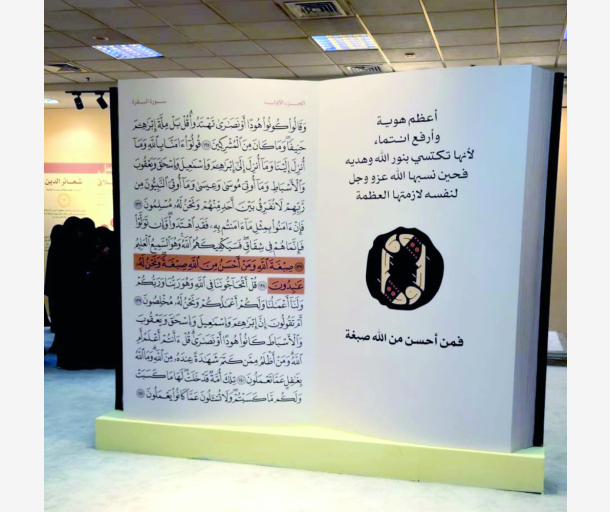 الجزء الأول سورة البقرة
وَقَالُوا۟ كُونُوا۟ هُودًا أَوْ نَصَٰرَىٰ تَهْتَدُوا۟ قُلْ بَلْ مِلَّةَ إِبْرَٰهِـۧمَ
حَنِيفًا وَمَا كَانَ مِنَ ٱلْمُشْرِكِينَ ١٣٥ قُولُوٓا۟ ءَامَنَّا بِٱللَّهِ وَمَآ
أُنزِلَ إِلَيْنَا وَمَآ أُنزِلَ إِلَىٰٓ إِبْرَٰهِـۧمَ وَإِسْمَٰعِيلَ وَإِسْحَٰقَ وَيَعْقُوبَ
وَٱلْأَسْبَاطِ وَمَآ أُوتِيَ مُوسَىٰ وَعِيسَىٰ وَمَآ أُوتِيَ ٱلنَّبِيُّونَ مِن
رَّبِّهِمْ لَا نُفَرِّقُ بَيْنَ أَحَدٍ مِّنْهُمْ وَنَحْنُ لَهُۥ مُسْلِمُونَ ١٣٦
فَإِنْ ءَامَنُوا۟ بِمِثْلِ مَآ ءَامَنتُم بِهِۦ فَقَدِ ٱهْتَدَوا۟ وَّإِن تَوَلَّوْا۟
فَإِنَّمَا هُمْ فِي شِقَاقٍ فَسَيَكْفِيكَهُمُ ٱللَّهُ وَهُوَ ٱلسَّمِيعُ ٱلْعَلِيمُ
١٣٧ صِبْغَةَ ٱللَّهِ وَمَنْ أَحْسَنُ مِنَ ٱللَّهِ صِبْغَةً وَنَحْنُ لَهُۥ
عَٰبِدُونَ ١٣٨ قُلْ أَتُحَآجُّونَنَا فِي ٱللَّهِ وَهُوَ رَبُّنَا وَرَبُّكُمْ
وَلَنَآ أَعْمَٰلُنَا وَلَكُمْ أَعْمَٰلُكُمْ وَنَحْنُ لَهُۥ مُخْلِصُونَ ١٣٩
أَمْ تَقُولُونَ إِنَّ إِبْرَٰهِـۧمَ وَإِسْمَٰعِيلَ وَإِسْحَٰقَ وَيَعْقُوبَ
وَٱلْأَسْبَاطَ كَانُوا۟ هُودًا أَوْ نَصَٰرَىٰ قُلْ ءَأَنتُمْ أَعْلَمُ أَمِ
ٱللَّهُ وَمَنْ أَظْلَمُ مِمَّن كَتَمَ شَهَٰدَةً عِندَهُۥ مِنَ ٱللَّهِ وَمَا ٱللَّهُ
بِغَٰفِلٍ عَمَّا تَعْمَلُونَ ١٤٠ تِلْكَ أُمَّةٌ قَدْ خَلَتْ لَهَا مَا كَسَبَتْ
وَلَكُم مَّا كَسَبْتُمْ وَلَا تُسْـَٔلُونَ عَمَّا كَانُوا۟ يَعْمَلُونَ ١٤١
أعظم هوية
وأرفع انتماء
لأنها تكتسي بنور الله وهديه
فحين نسبها الله عزو وجل
لنفسه لازمتها العظمة
فمن أحسن من الله صبغة
شعائر الدين